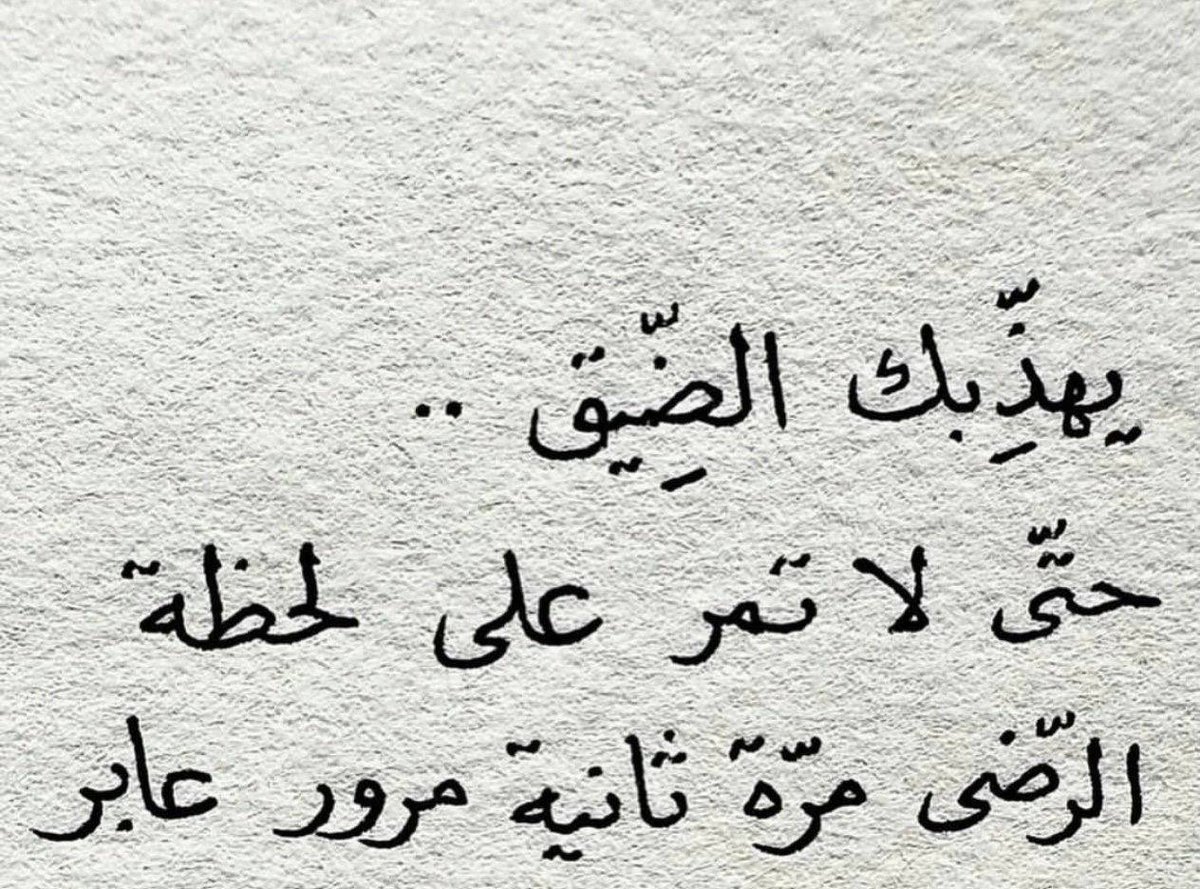 يهذِّبك الضِّيق ..
حتّى لا تمر على لحظة
الرّضى مرّة ثانية مرور عابر